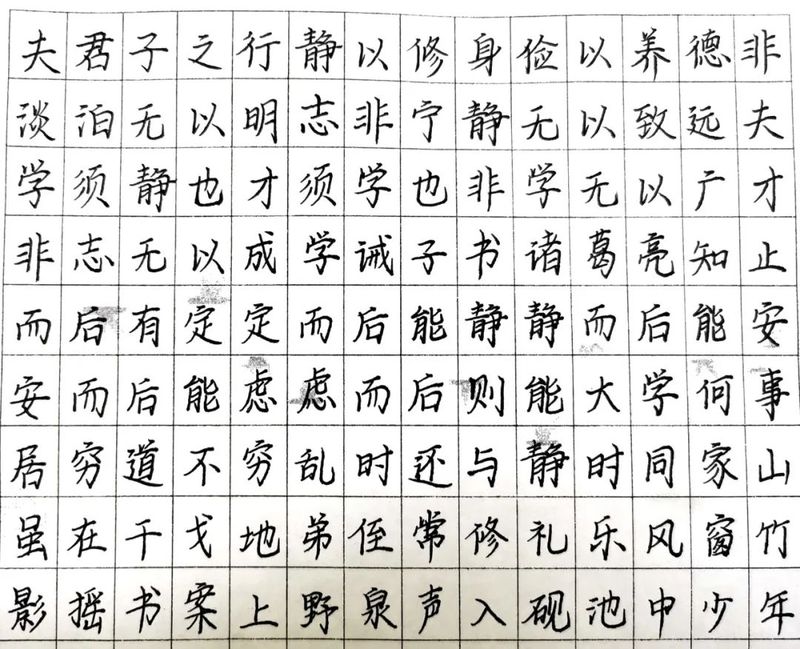 夫君子之行静以修身俭以养德非
淡泊无以明志非宁静无以致远夫
学须静也才须学也非学无以广才
非志无以成学诫子书诸葛亮知止
而后有定定而后能静静而后能安
安而后能虑虑而后则能大学何事
居穷道不穷乱时还与静时同家山
虽在干戈地弟侄常修礼乐风窗竹
影摇书案上野泉声入砚池中少年